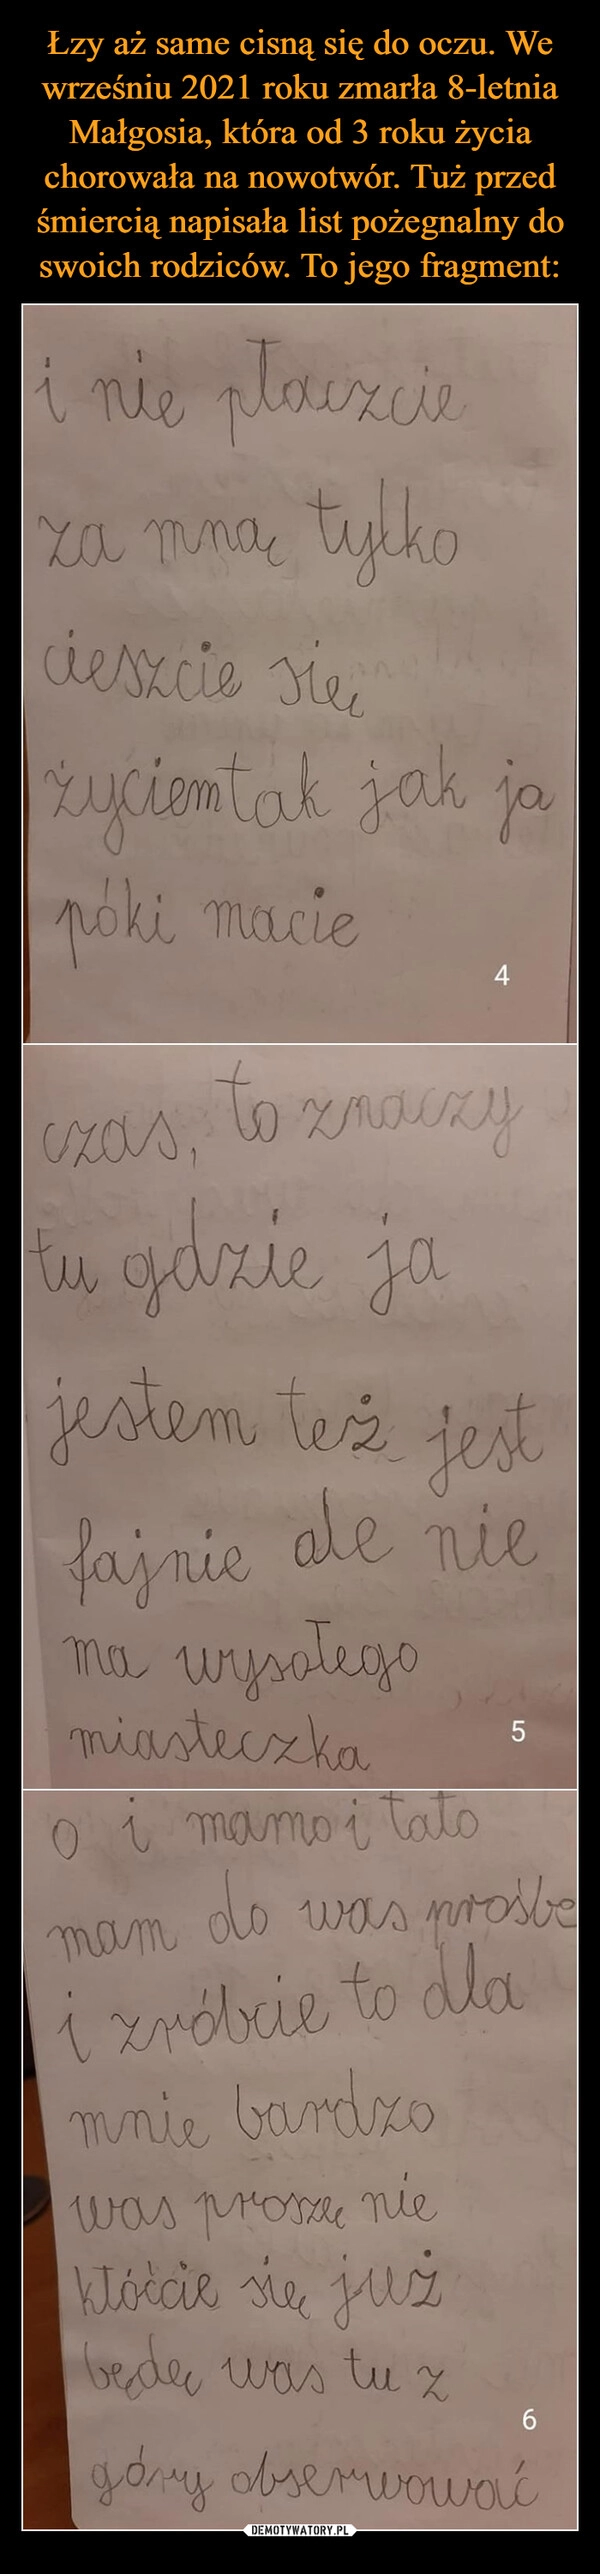 Łzy aż same cisną się do oczu. We
wrześniu 2021 roku zmarła 8-letnia
Małgosia, która od 3 roku życia
chorowała na nowotwór. Tuż przed
śmiercią napisała list pożegnalny do
swoich rodziców. To jego fragment:
i nie płaczcie
za mną tylko
cieszcie się
życiem tak jak ja
póki macie
4
czas, to znaczy
tu gdzie ja
jestem też jest
fajnie ale nie
ma wysołego
miasteczka
5
o i mamo i tato
mam do was prośbe
i zróbcie to dla
mnie bardzo
was proszę nie
kłóćcie się już
będę was tu z
6
góry obserwować
DEMOTYWATORY.PL